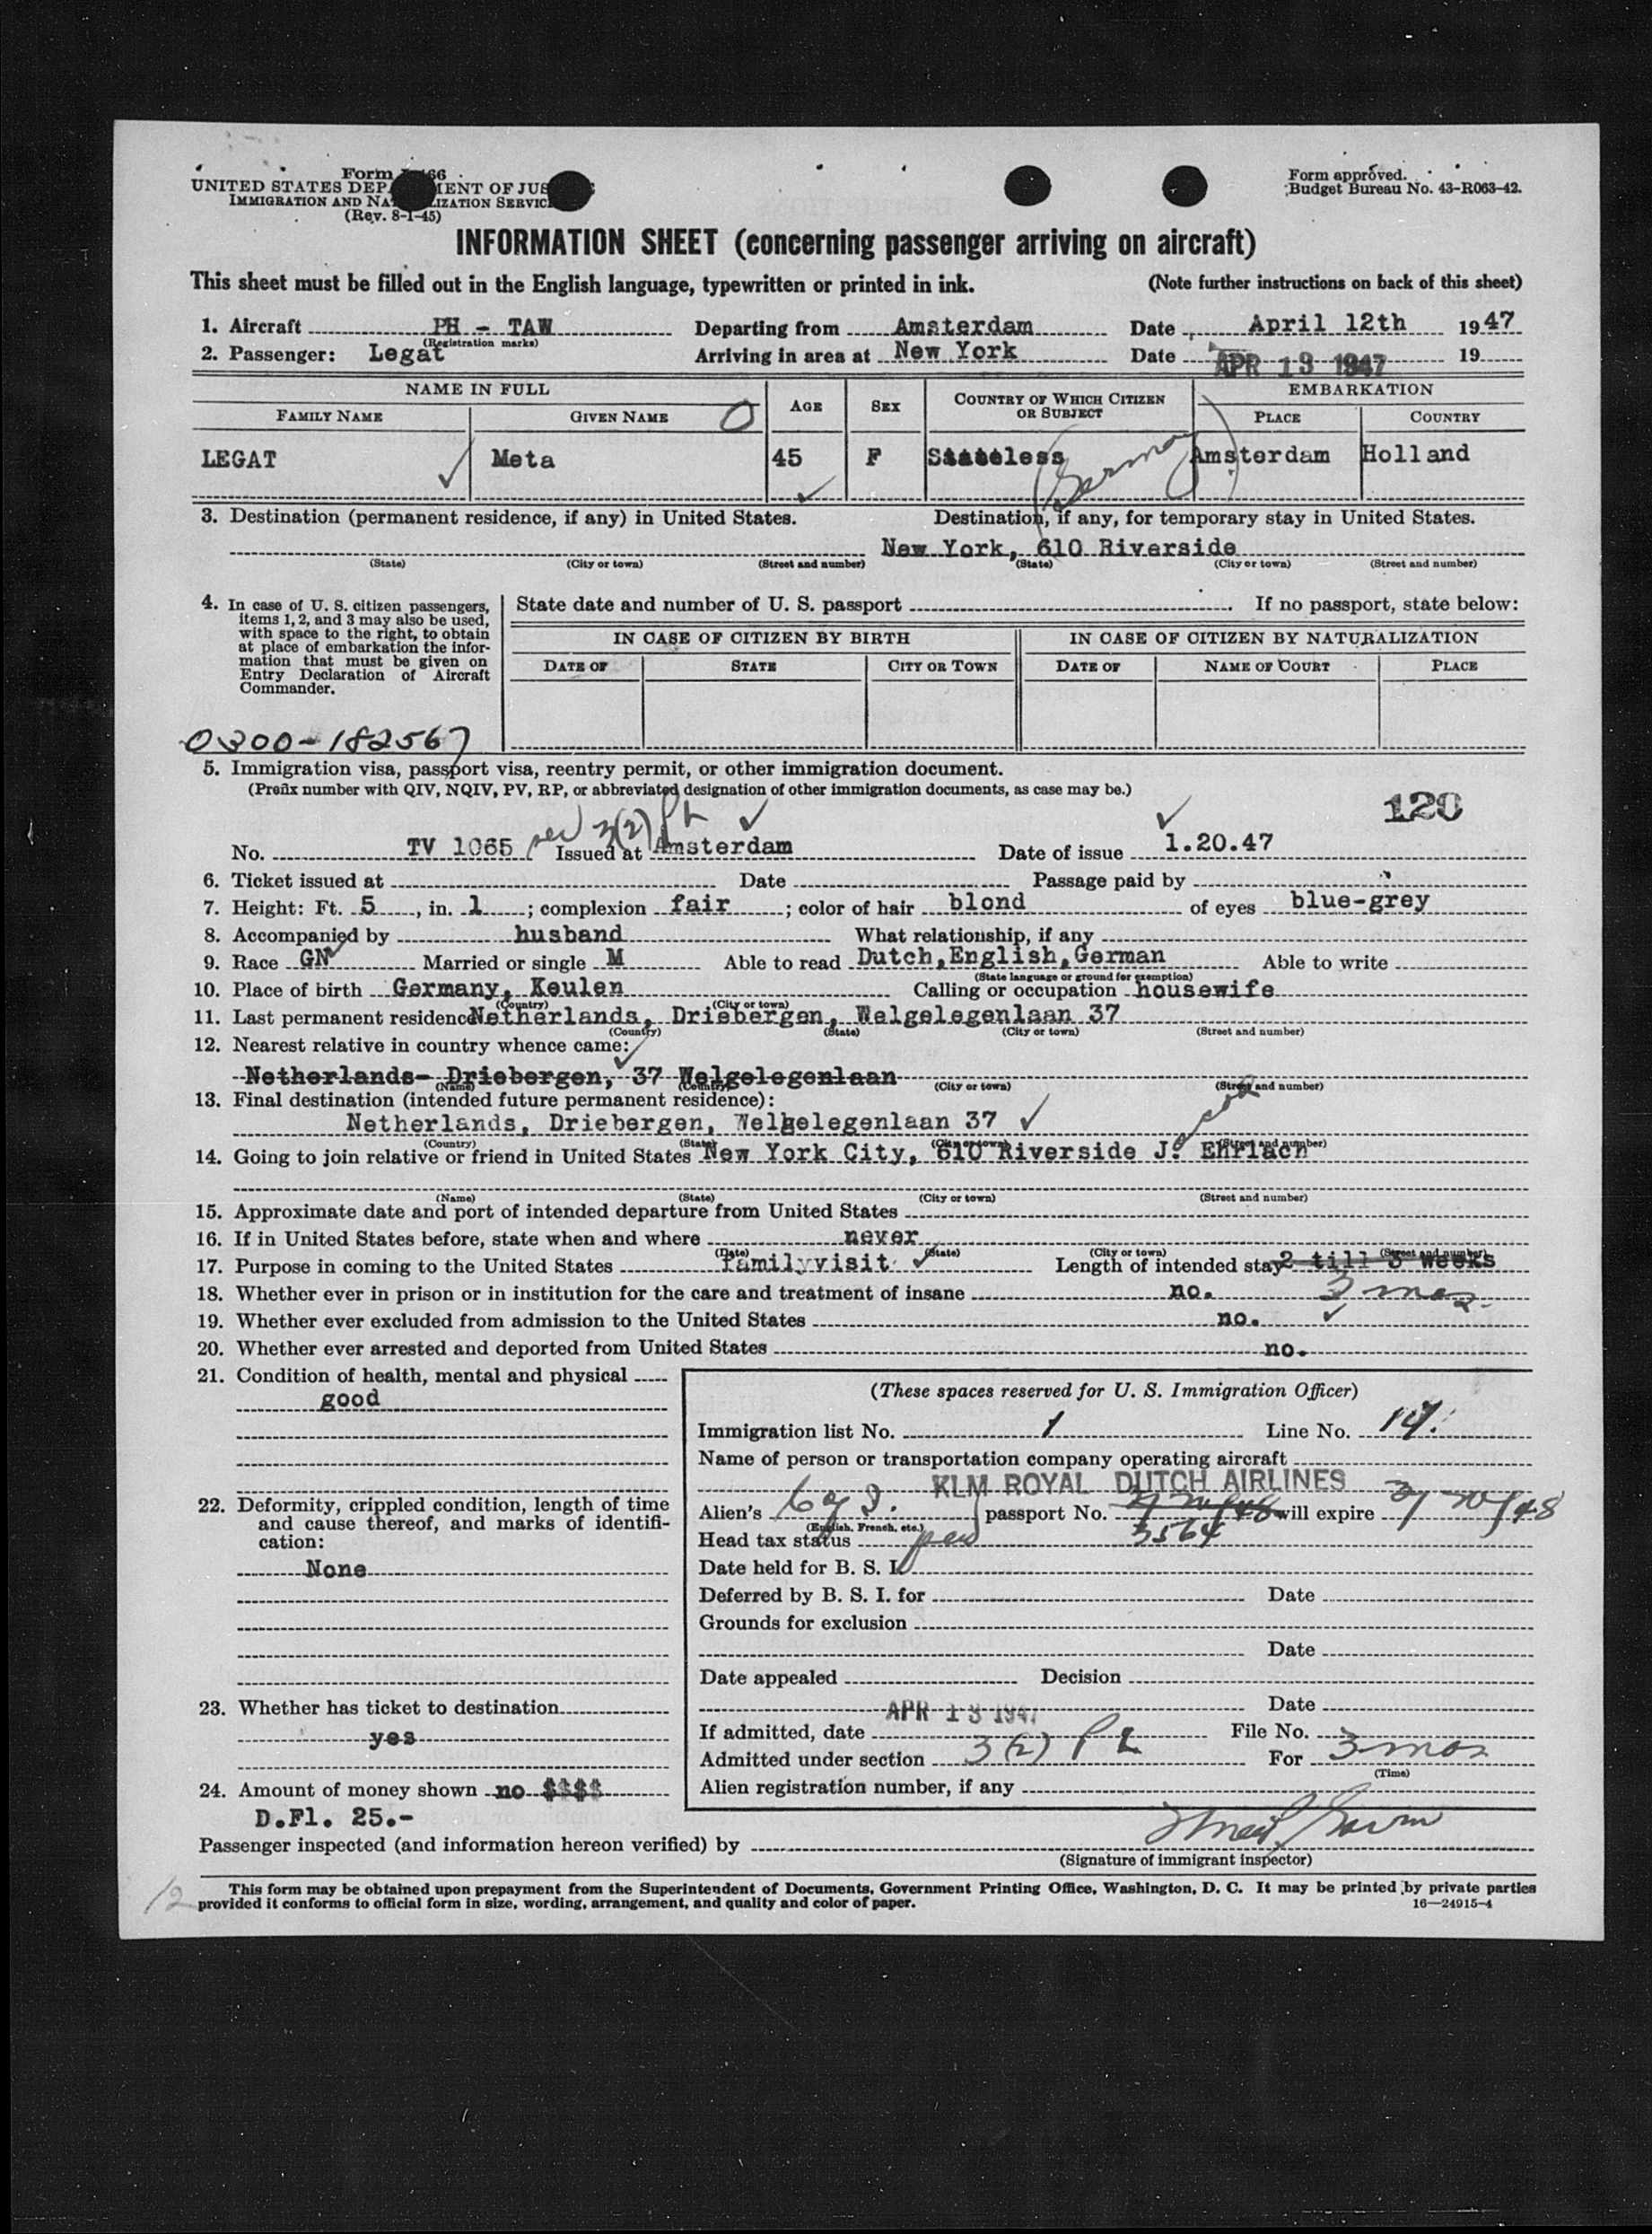 Form I-466
UNITED STATES DEPARTMENT OF JUSTICE
IMMIGRATION AND NATURALIZATION SERVICE
(Rev. 8-1-45)
Form approved.
Budget Bureau No. 43-R063-42.
INFORMATION SHEET (concerning passenger arriving on aircraft)
This sheet must be filled out in the English language, typewritten or printed in ink. (Note further instructions on back of this sheet)
1. Aircraft PH - TAW Departing from Amsterdam Date April 12th 1947
(Registration marks)
2. Passenger: Legat Arriving in area at New York Date APR 13 1947 19
NAME IN FULL AGE SEX COUNTRY OF WHICH CITIZEN OR SUBJECT EMBARKATION
FAMILY NAME GIVEN NAME PLACE COUNTRY
LEGAT Meta 45 F Stateless (Germany) Amsterdam Holland
3. Destination (permanent residence, if any) in United States. Destination, if any, for temporary stay in United States.
New York, 610 Riverside
(State) (City or town) (Street and number) (State) (City or town) (Street and number)
4. In case of U. S. citizen passengers, items 1, 2, and 3 may also be used, with space to the right, to obtain at place of embarkation the information that must be given on Entry Declaration of Aircraft Commander.
State date and number of U. S. passport If no passport, state below:
IN CASE OF CITIZEN BY BIRTH IN CASE OF CITIZEN BY NATURALIZATION
DATE OF STATE CITY OR TOWN DATE OF NAME OF COURT PLACE
0300-182567
5. Immigration visa, passport visa, reentry permit, or other immigration document.
(Prefix number with QIV, NQIV, PV, RP, or abbreviated designation of other immigration documents, as case may be.)
120
3(2)
No. TV 1065 Issued at Amsterdam Date of issue 1.20.47
6. Ticket issued at Date Passage paid by
7. Height: Ft. 5, in. 1; complexion fair; color of hair blond of eyes blue-grey
8. Accompanied by husband What relationship, if any
9. Race GN Married or single M Able to read Dutch, English, German Able to write
(State language or ground for exemption)
10. Place of birth Germany, Keulen Calling or occupation housewife
(Country) (City or town)
11. Last permanent residence Netherlands, Driebergen, Welgelegenlaan 37
(Country) (State) (City or town) (Street and number)
12. Nearest relative in country whence came:
Netherlands- Driebergen, 37 Welgelegenlaan
(Name) (Country) (City or town) (Street and number)
13. Final destination (intended future permanent residence):
Netherlands, Driebergen, Welgelegenlaan 37
(Country) (State) (City or town) (Street and number)
14. Going to join relative or friend in United States New York City, 610 Riverside J. Ehrlach
(Name) (State) (City or town) (Street and number)
15. Approximate date and port of intended departure from United States
16. If in United States before, state when and where never
(Date) (State) (City or town) (Street and number)
17. Purpose in coming to the United States familyvisit Length of intended stay 2 till 3 weeks
18. Whether ever in prison or in institution for the care and treatment of insane no. 3 mos.
19. Whether ever excluded from admission to the United States no.
20. Whether ever arrested and deported from United States no.
21. Condition of health, mental and physical
good
22. Deformity, crippled condition, length of time and cause thereof, and marks of identification:
None
23. Whether has ticket to destination
yes
24. Amount of money shown no $$$$
D.Fl. 25.-
(These spaces reserved for U. S. Immigration Officer)
Immigration list No. 1 Line No. 14.
Name of person or transportation company operating aircraft
KLM ROYAL DUTCH AIRLINES
Alien's passport No. 3564 will expire 3/20/48
(English, French, etc.)
Head tax status
Date held for B. S. I.
Deferred by B. S. I. for Date
Grounds for exclusion
Date
Date appealed Decision
APR 13 1947 Date
If admitted, date File No.
Admitted under section 3(2) For 3 mos
(Time)
Alien registration number, if any
Passenger inspected (and information hereon verified) by
(Signature of immigrant inspector)
This form may be obtained upon prepayment from the Superintendent of Documents, Government Printing Office, Washington, D. C. It may be printed by private parties
provided it conforms to official form in size, wording, arrangement, and quality and color of paper. 16—24915-4
12